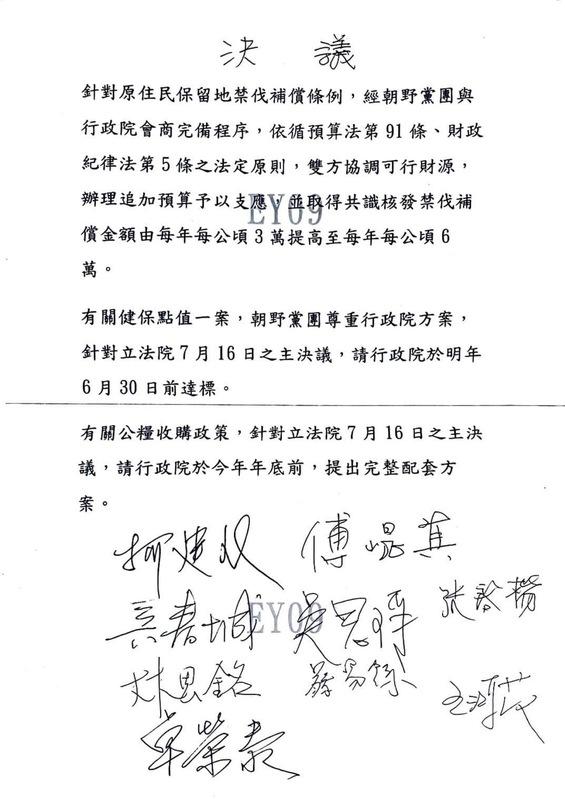 決議
針對原住民保留地禁伐補償條例，經朝野黨團與
行政院會商完備程序，依循預算法第91條、財政
紀律法第5條之法定原則，雙方協調可行財源，
辦理追加預算予以支應，並取得共識核發禁伐補
償金額由每年每公頃3萬提高至每年每公頃6
萬。
EY09
有關健保點值一案，朝野黨團尊重行政院方案，
針對立法院7月16日之主決議，請行政院於明年
6月30日前達標。
有關公糧收購政策，針對立法院7月16日之主決
議，請行政院於今年年底前，提出完整配套方
案。
柯建銘 傅崐萁
吳春城 吳思瑤 張啓楷
EY09
林思銘 蔡易餘
卓榮泰